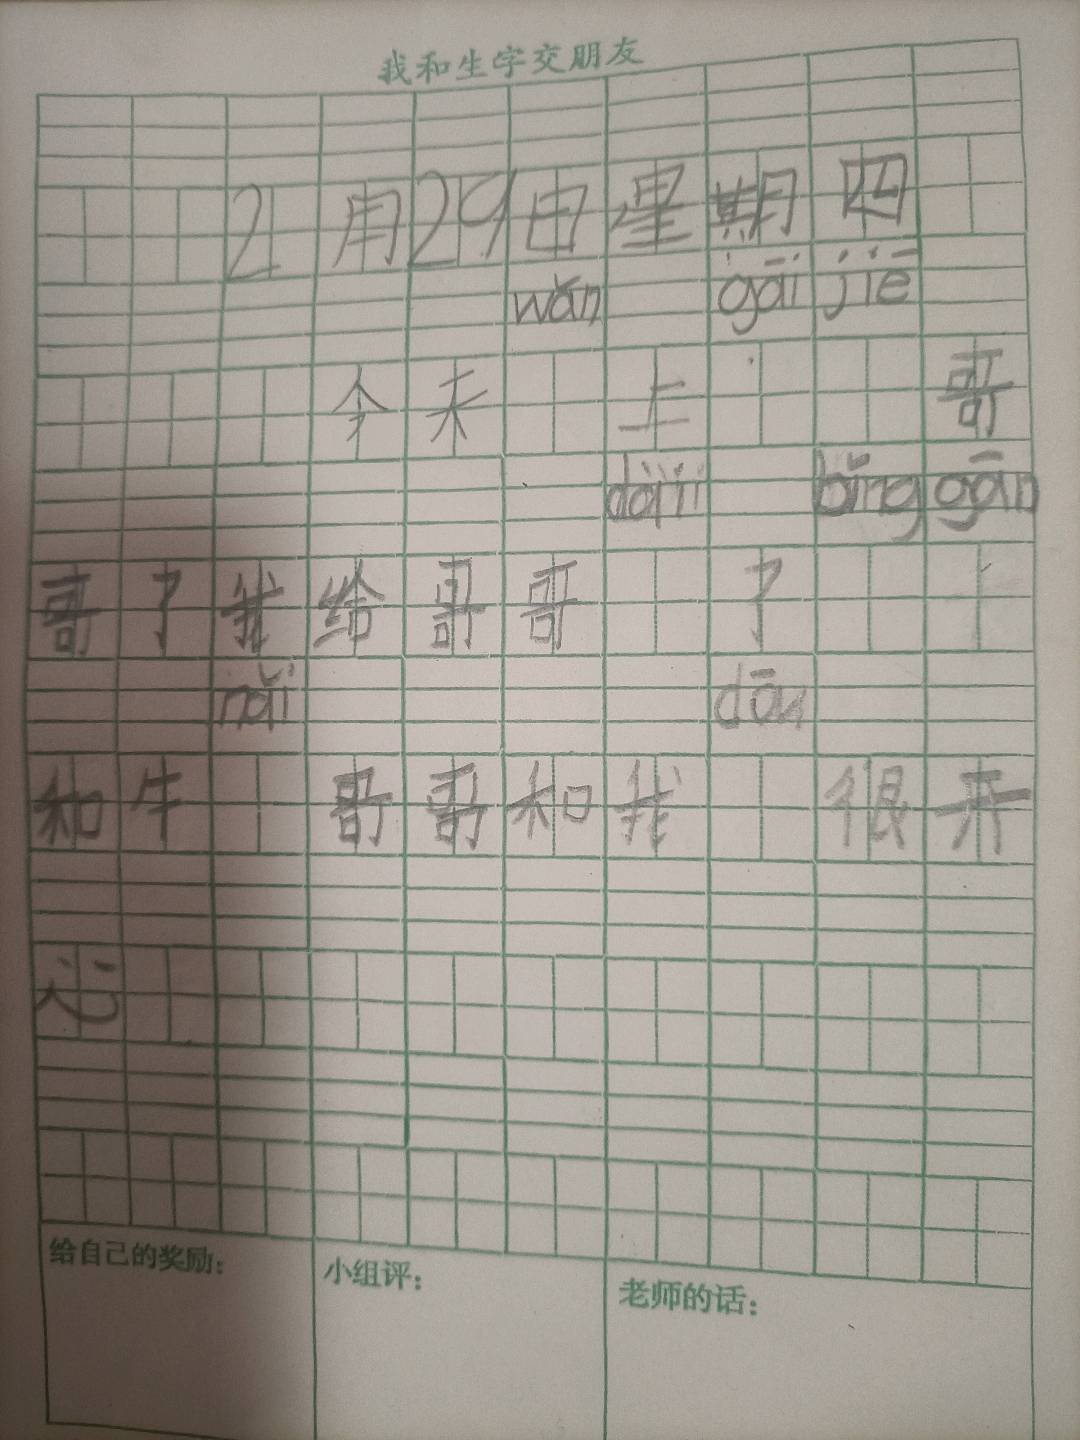 我和生字交朋友
2月29日星期四
wǎn gāi jiē
今天上哥
dài bǐng gān
哥了我给哥哥了
nǎi dōu
和牛哥哥和我很开
心
给自己的奖励：
小组评：
老师的话：